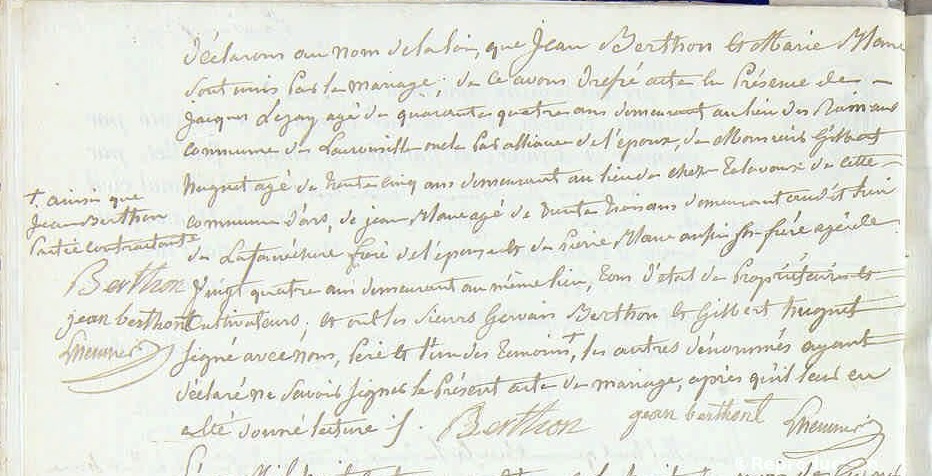 déclarons au nom de la loi, que Jean Berthon et Marie Mane
sont unis par le mariage; de ce avons dressé acte en Présence de
Jacques Lezay agé de quarante quatre ans demeurant au lieu des
commune de oncle par alliance de l'époux, de Monsieur Gilbert
huguet agé de trente cinq ans demeurant au lieu de chez de cette
commune d'ars, de jean Mane agé de trente trois ans demeurant audit lieu
de frère de l'épouse et de Pierre Mane aussi son frère agé de
vingt quatre ans demeurant au même lieu, tous d'état de Propriétaires et
Cultivateurs; et ont les sieurs Gervais Berthon et Gilbert huguet
signé avec nous, Père et l'un des témoins +, les autres dénommés ayant
déclaré ne savoir signer le Présent acte de mariage, après qu'il leur en
a été donné lecture /.
Berthon jean berthont Lmeunier
+ ainsi que
Jean Berthon
Partie contractante
Berthon
jean berthont
Lmeunier